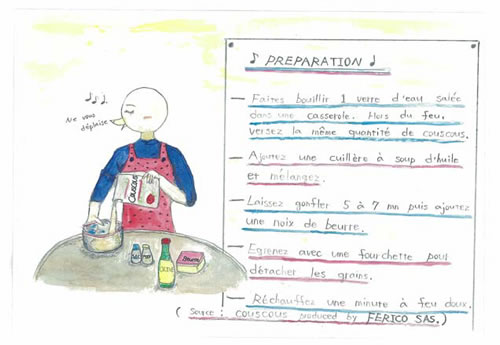 ♪ PREPARATION ♩
— Faites bouillir 1 verre d'eau salée
dans une casserole. Hors du feu,
versez la même quantité de couscous.
— Ajoutez une cuillère à soup d'huile
et mélangez.
— Laissez gonfler 5 à 7 mn puis ajoutez
une noix de beurre.
— Egrenez avec une fourchette pour
détacher les grains.
— Réchauffez une minute à feu doux.
( Source : couscous produced by FERICO SAS.)
Ne vous
déplaise
Couscous
SEL
OLIVE
Beurre